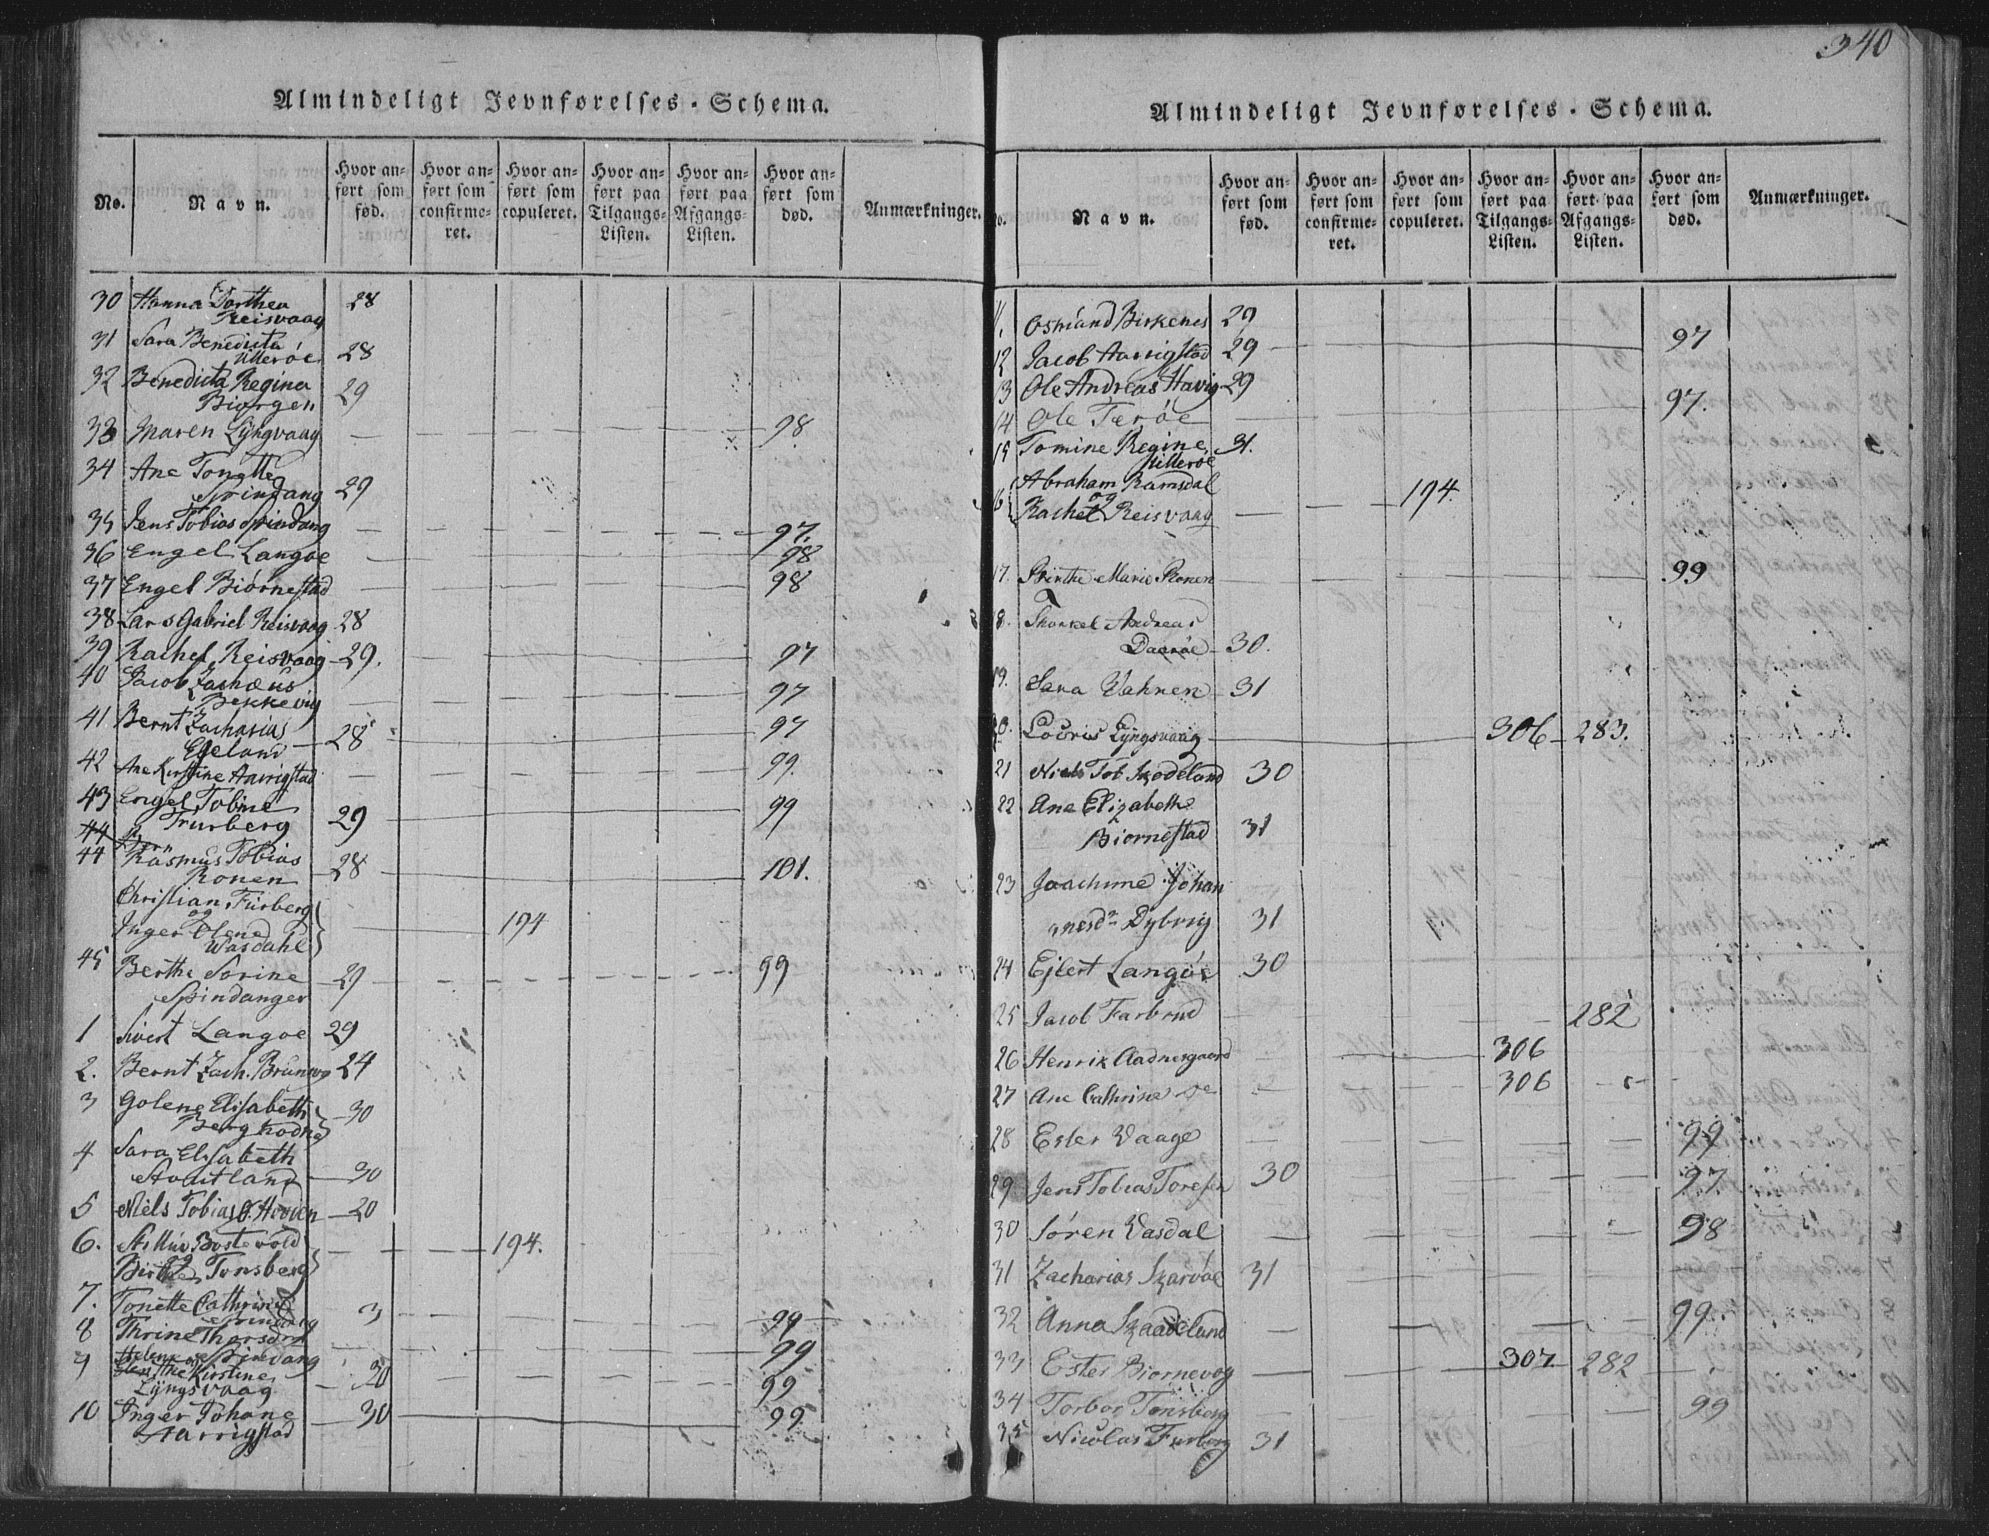 Almindeligt Jevnførelses-Schema.
No. Navn. Hvor anført som fød. Hvor anført som confirmeret. Hvor anført som copuleret. Hvor anført paa Tilgangs-Listen. Hvor anført paa Afgangs-Listen. Hvor anført som død. Anmærkninger.
30 Hanna Dorthea 28
Reisvaag
31 Sara Benedicta
Utterøe 28
32 Benedicta Regina 29
Biørgen
33 Maren Lÿngvaag 98
34 Ane Tonette
Spindang 29
35 Jens Tobias Spindang 97.
36 Engel Langøe 98
37 Engel Biørnestad 98
38 Lars Gabriel Reisvaag 28
39 Rachel Reisvaag 29. 97
40 Jacob Zachæus
Bekkevig 97
41 Bernt Zacharias 97
Egeland 28
42 Ane Kirstine Aarrigstad 99.
43 Engel Tobine 99
Frurberg 29
44
44 Rasmus Tobias 101.
Ronen 28
Christian Furberg
og 194
Inger Olene
Wasdahl
45 Berthe Sorine 29 99
Spindanger
1 Sivert Langøe 29
2. Bernt Zach. Brunvig 24
3 Golene Elisabeth 30
Berg
4 Sara Elisabeth
Stoutland 30
5 Niels Tobias 20
6. Bostevold 194.
og
Birthe Tonsberg
7. Tonette Cathrine 3 99
8 Thrine Thorsdtr 99
9 Helene og Spindvang
Kirstine 30 99
Lÿngsvaag
10 Inger Johane 30 99
Aarrigstad
340
Almindeligt Jevnførelses-Schema.
No. Navn. Hvor anført som fød. Hvor anført som confirmeret. Hvor anført som copuleret. Hvor anført paa Tilgangs-Listen. Hvor anført paa Afgangs-Listen. Hvor anført som død. Anmærkninger.
11. Osmund Birkenes 29
12 Jacob Aarrigstad 29 97
13 Ole Andreas Havig 29
14 Ole Terøe 97.
15 Tomine Regine 31.
Hitterøe
16 Abraham Ramsdal 194.
og
Rachel Reisvaag
17. Birthe Marie Ronen 99
18. Thorkel Andreas
Daarøe 30.
19. Sara Vahnen 31
20. Lovris Lÿngsvaag 306 283.
21 Niels Tob Skodeland 30
22 Ane Elizabeth
Biornestad 31
23 Joachime Johan
nesdr Dybvig 31
24 Ejlert Langøe 30
25 Jacob Farbrud 282
26 Henrik Aadnesgaard 306
27 Ane Cathrine 306
28 Ester Vaage 99
29 Jens Tobias Toresen 30 97
30 Søren Vasdal 98
31 Zacharias Skarvøe 31
32 Anna Skaadeland 99
33 Ester Biornevog 307 282
34 Torbor Tonsberg 99
35 Nicolas Furberg 31